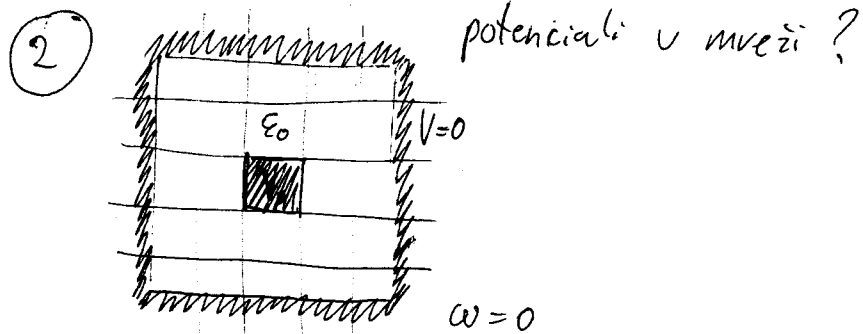 2
potenciali v mreži ?
ε₀
V=0
ω = 0